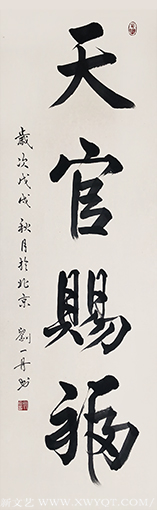 天官賜福
歲次戊戌 秋月於北京 劉一丹書
新文艺 WWW.NWYQT.COM/